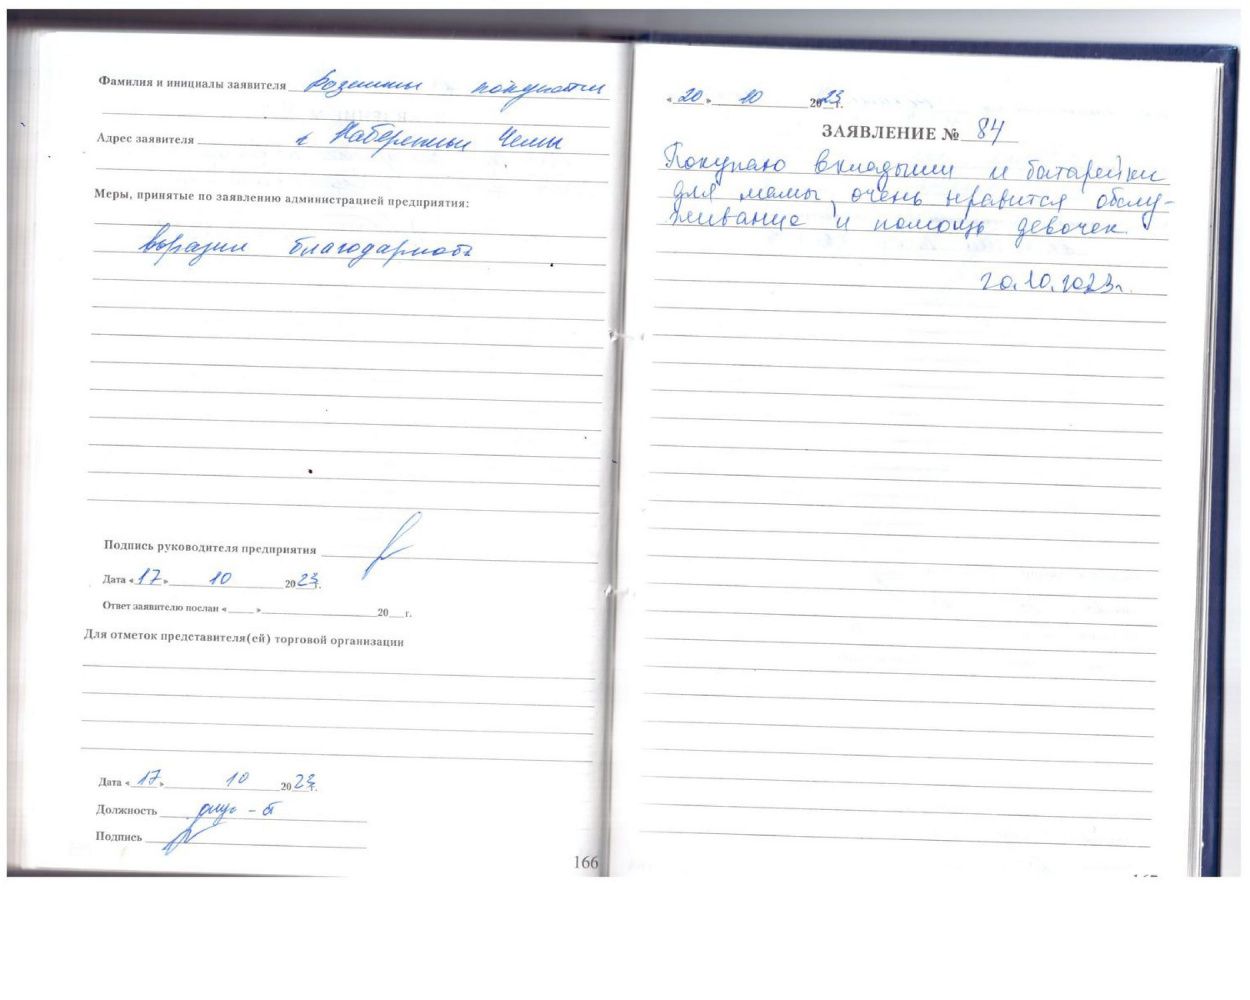 Фамилия и инициалы заявителя
Адрес заявителя г Набережные Челны
Меры, принятые по заявлению администрацией предприятия:
выразили благодарность
Подпись руководителя предприятия
Дата «17» 10 2023г.
Ответ заявителю послан «  » 20 г.
Для отметок представителя(ей) торговой организации
Дата «17» 10 2023г.
Должность
Подпись
166
«20» 10 2023г.
ЗАЯВЛЕНИЕ № 84
Покупаю вкладыши и батарейки
для мамы, очень нравится обслу-
живание и помощь девочек.
20.10.2023г.